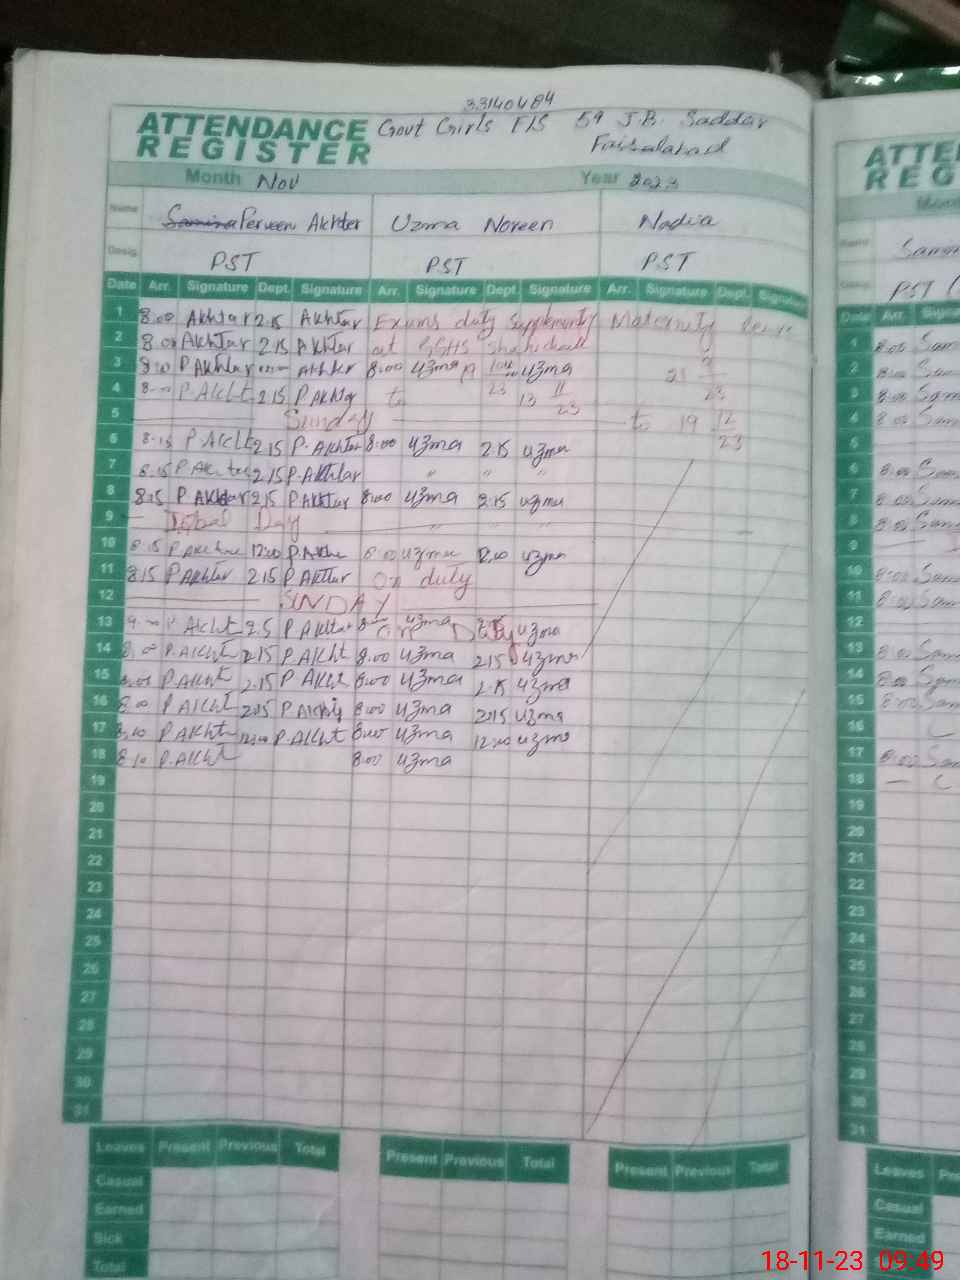 33140484
ATTENDANCE REGISTER Govt Girls E/S 59 J.B. Saddar
Faisalabad
Month Nov Year 2023
Name Samina Perveen Akhter Uzma Noreen Nadia
Desig. PST PST PST
Date Arr. Signature Dept. Signature Arr. Signature Dept. Signature Arr. Signature Dept. Signature
1 8.00 Akhtar 2.15 Akhtar Exams duty Maternity
2 8.00 Akhtar 2.15 Akhtar at GGHS
3 8.00 P Akhtar 8:00 uzma uzma 21 9/23
4 P. Akht 2.15 P Akhtar to 13 11/23
5 Sunday to 19 12/23
6 8.15 P Akht 2.15 P. Akhtar 8:00 uzma 2.15 uzma
7 8.15 P Akhtar 2.15 P. Akhtar " " "
8 8.15 P Akhtar 2.15 P Akhtar 8:00 uzma 2.15 uzma
9 Iqbal Day " " "
10 8.15 P Akhtar 12:00 P. Akhtar 8.00 uzma 12.00 uzma
11 8.15 P Akhtar 2.15 P Akhtar On duty
12 SUNDAY
13 P Akht P Akhtar uzma On Duty uzma
14 8.00 P. Akht 2.15 P Akht 8.00 uzma 2.15 uzma
15 8.00 P. Akht 2.15 P Akht 8:00 uzma 2.15 uzma
16 8.00 P Akht 2.15 P Akht 8:00 uzma 2.15 uzma
17 8.10 P Akht 12:00 P. Akht 8:00 uzma 12:00 uzma
18 8.10 P. Akht 8.00 uzma
19
20
21
22
23
24
25
26
27
28
29
30
31
Leaves Present Previous Total Present Previous Total Present Previous Total
Casual
Earned
Sick
Total
ATTE
REG
PST
Date Arr.
1 8:00 Sam
2 8:00 Sam
3 8:00 Sam
4 8:00 Sam
5
6 8:00 Sam
7 8:00 Sam
8 8:00 Sam
9
10 8:00 Sam
11 8:00 Sam
12
13 8:00 Sam
14 8:00 Sam
15 8:00 Sam
16
17 8:00 Sam
18
19
20
21
22
23
24
25
26
27
28
29
30
31
Leaves
Casual
Earned
18-11-23 09:49